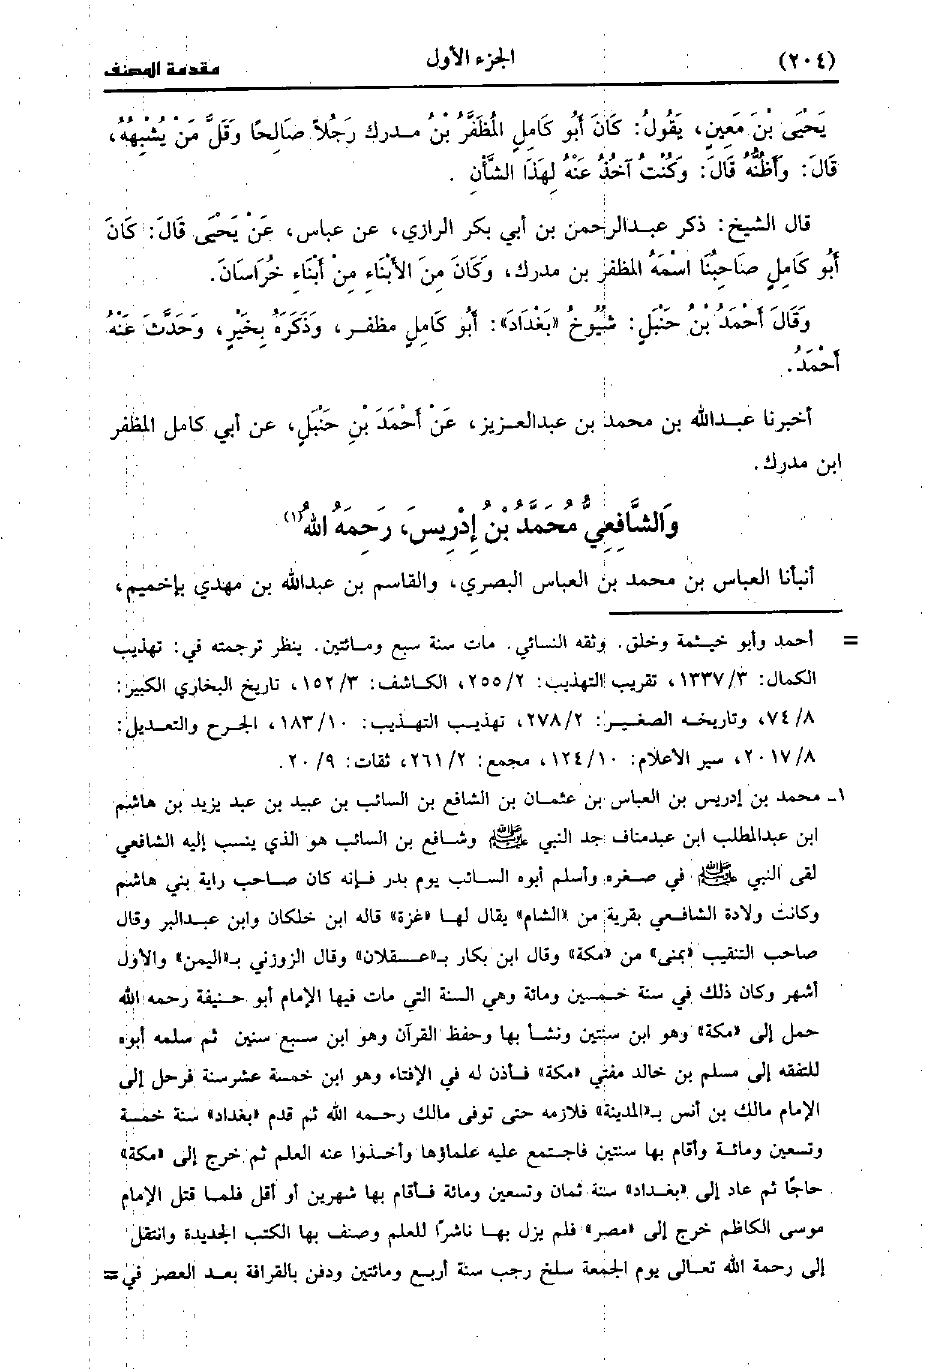 (٢٠٤) الجزء الأول مقدمة المصنف
يَحْيَى بْنَ مَعِينٍ، يَقُولُ: كَانَ أَبُو كَامِلٍ المُظَفَّرُ بْنُ مدرك رَجُلاً صَالِحًا وَقَلَّ مَنْ يُشْبِهُهُ،
قَالَ: وَأَظُنُّهُ قَالَ: وَكُنْتُ آخُذُ عَنْهُ لِهَذَا الشَّأْنِ .
قال الشيخ: ذكر عبدالرحمن بن أبي بكر الرازي، عن عباس، عَنْ يَحْيَى قَالَ: كَانَ
أَبُو كَامِلٍ صَاحِبُنَا اسْمُهُ المظفر بن مدرك، وَكَانَ مِنَ الأَبْنَاءِ مِنْ أَبْنَاءِ خُرَاسَانَ.
وَقَالَ أَحْمَدُ بْنُ حَنْبَلٍ: شُيُوخُ «بَغْدَادَ»: أَبُو كَامِلٍ مظفر، وَذَكَرَهُ بِخَيْرٍ، وَحَدَّثَ عَنْهُ
أَحْمَدُ.
أخبرنا عبدالله بن محمد بن عبدالعزيز، عَنْ أَحْمَدَ بْنِ حَنْبَلٍ، عن أبي كامل المظفر
ابن مدرك.
وَالشَّافِعِيُّ مُحَمَّدُ بْنُ إِدْرِيسَ، رَحِمَهُ اللهُ(١)
أنبأنا العباس بن محمد بن العباس البصري، والقاسم بن عبدالله بن مهدي بإخميم،
= أحمد وأبو خيثمة وخلق. وثقه النسائي. مات سنة سبع ومائتين. ينظر ترجمته في: تهذيب
الكمال: ١٣٣٧/٣، تقريب التهذيب: ٢٥٥/٢، الكاشف: ١٥٢/٣، تاريخ البخاري الكبير:
٧٤/٨، وتاريخه الصغير: ٢٧٨/٢، تهذيب التهذيب: ١٨٣/١٠، الجرح والتعديل:
٢٠١٧/٨، سير الأعلام: ١٢٤/١٠، مجمع: ٢٦١/٢، ثقات: ٢٠/٩.
١- محمد بن إدريس بن العباس بن عثمان بن الشافع بن السائب بن عبيد بن عبد يزيد بن هاشم
ابن عبدالمطلب ابن عبدمناف جد النبي ﷺ وشافع بن السائب هو الذي ينسب إليه الشافعي
لقى النبي ﷺ في صغره وأسلم أبوه السائب يوم بدر فإنه كان صاحب راية بني هاشم
وكانت ولادة الشافعي بقرية من «الشام» يقال لها «غزة» قاله ابن خلكان وابن عبدالبر وقال
صاحب التنقيب «بمنى» من «مكة» وقال ابن بكار بـ«عسقلان» وقال الزوزني بـ«اليمن» والأول
أشهر وكان ذلك في سنة خمسين ومائة وهي السنة التي مات فيها الإمام أبو حنيفة رحمه الله
حمل إلى «مكة» وهو ابن سنتين ونشأ بها وحفظ القرآن وهو ابن سبع سنين ثم سلمه أبوه
للتفقه إلى مسلم بن خالد مفتي «مكة» فأذن له في الإفتاء وهو ابن خمسة عشر سنة فرحل إلى
الإمام مالك بن أنس بـ«المدينة» فلازمه حتى توفى مالك رحمه الله ثم قدم «بغداد» سنة خمسة
وتسعين ومائة وأقام بها سنتين فاجتمع عليه علماؤها وأخذوا عنه العلم ثم خرج إلى «مكة»
حاجًا ثم عاد إلى «بغداد» سنة ثمان وتسعين ومائة فأقام بها شهرين أو أقل فلما قتل الإمام
موسى الكاظم خرج إلى «مصر» فلم يزل بها ناشرًا للعلم وصنف بها الكتب الجديدة وانتقل
إلى رحمة الله تعالى يوم الجمعة سلخ رجب سنة أربع ومائتين ودفن بالقرافة بعد العصر في=